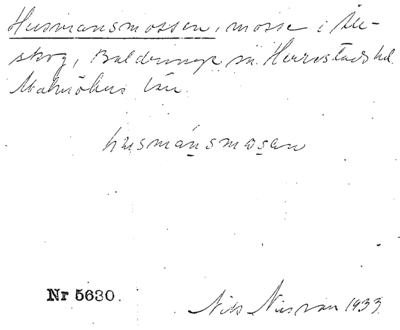 Husmansmossen, mosse i
skog, Baldringe sn. Herrestads hd.
Malmöhus län.
husmánsmosen
Nr 5630.
Nils 1933